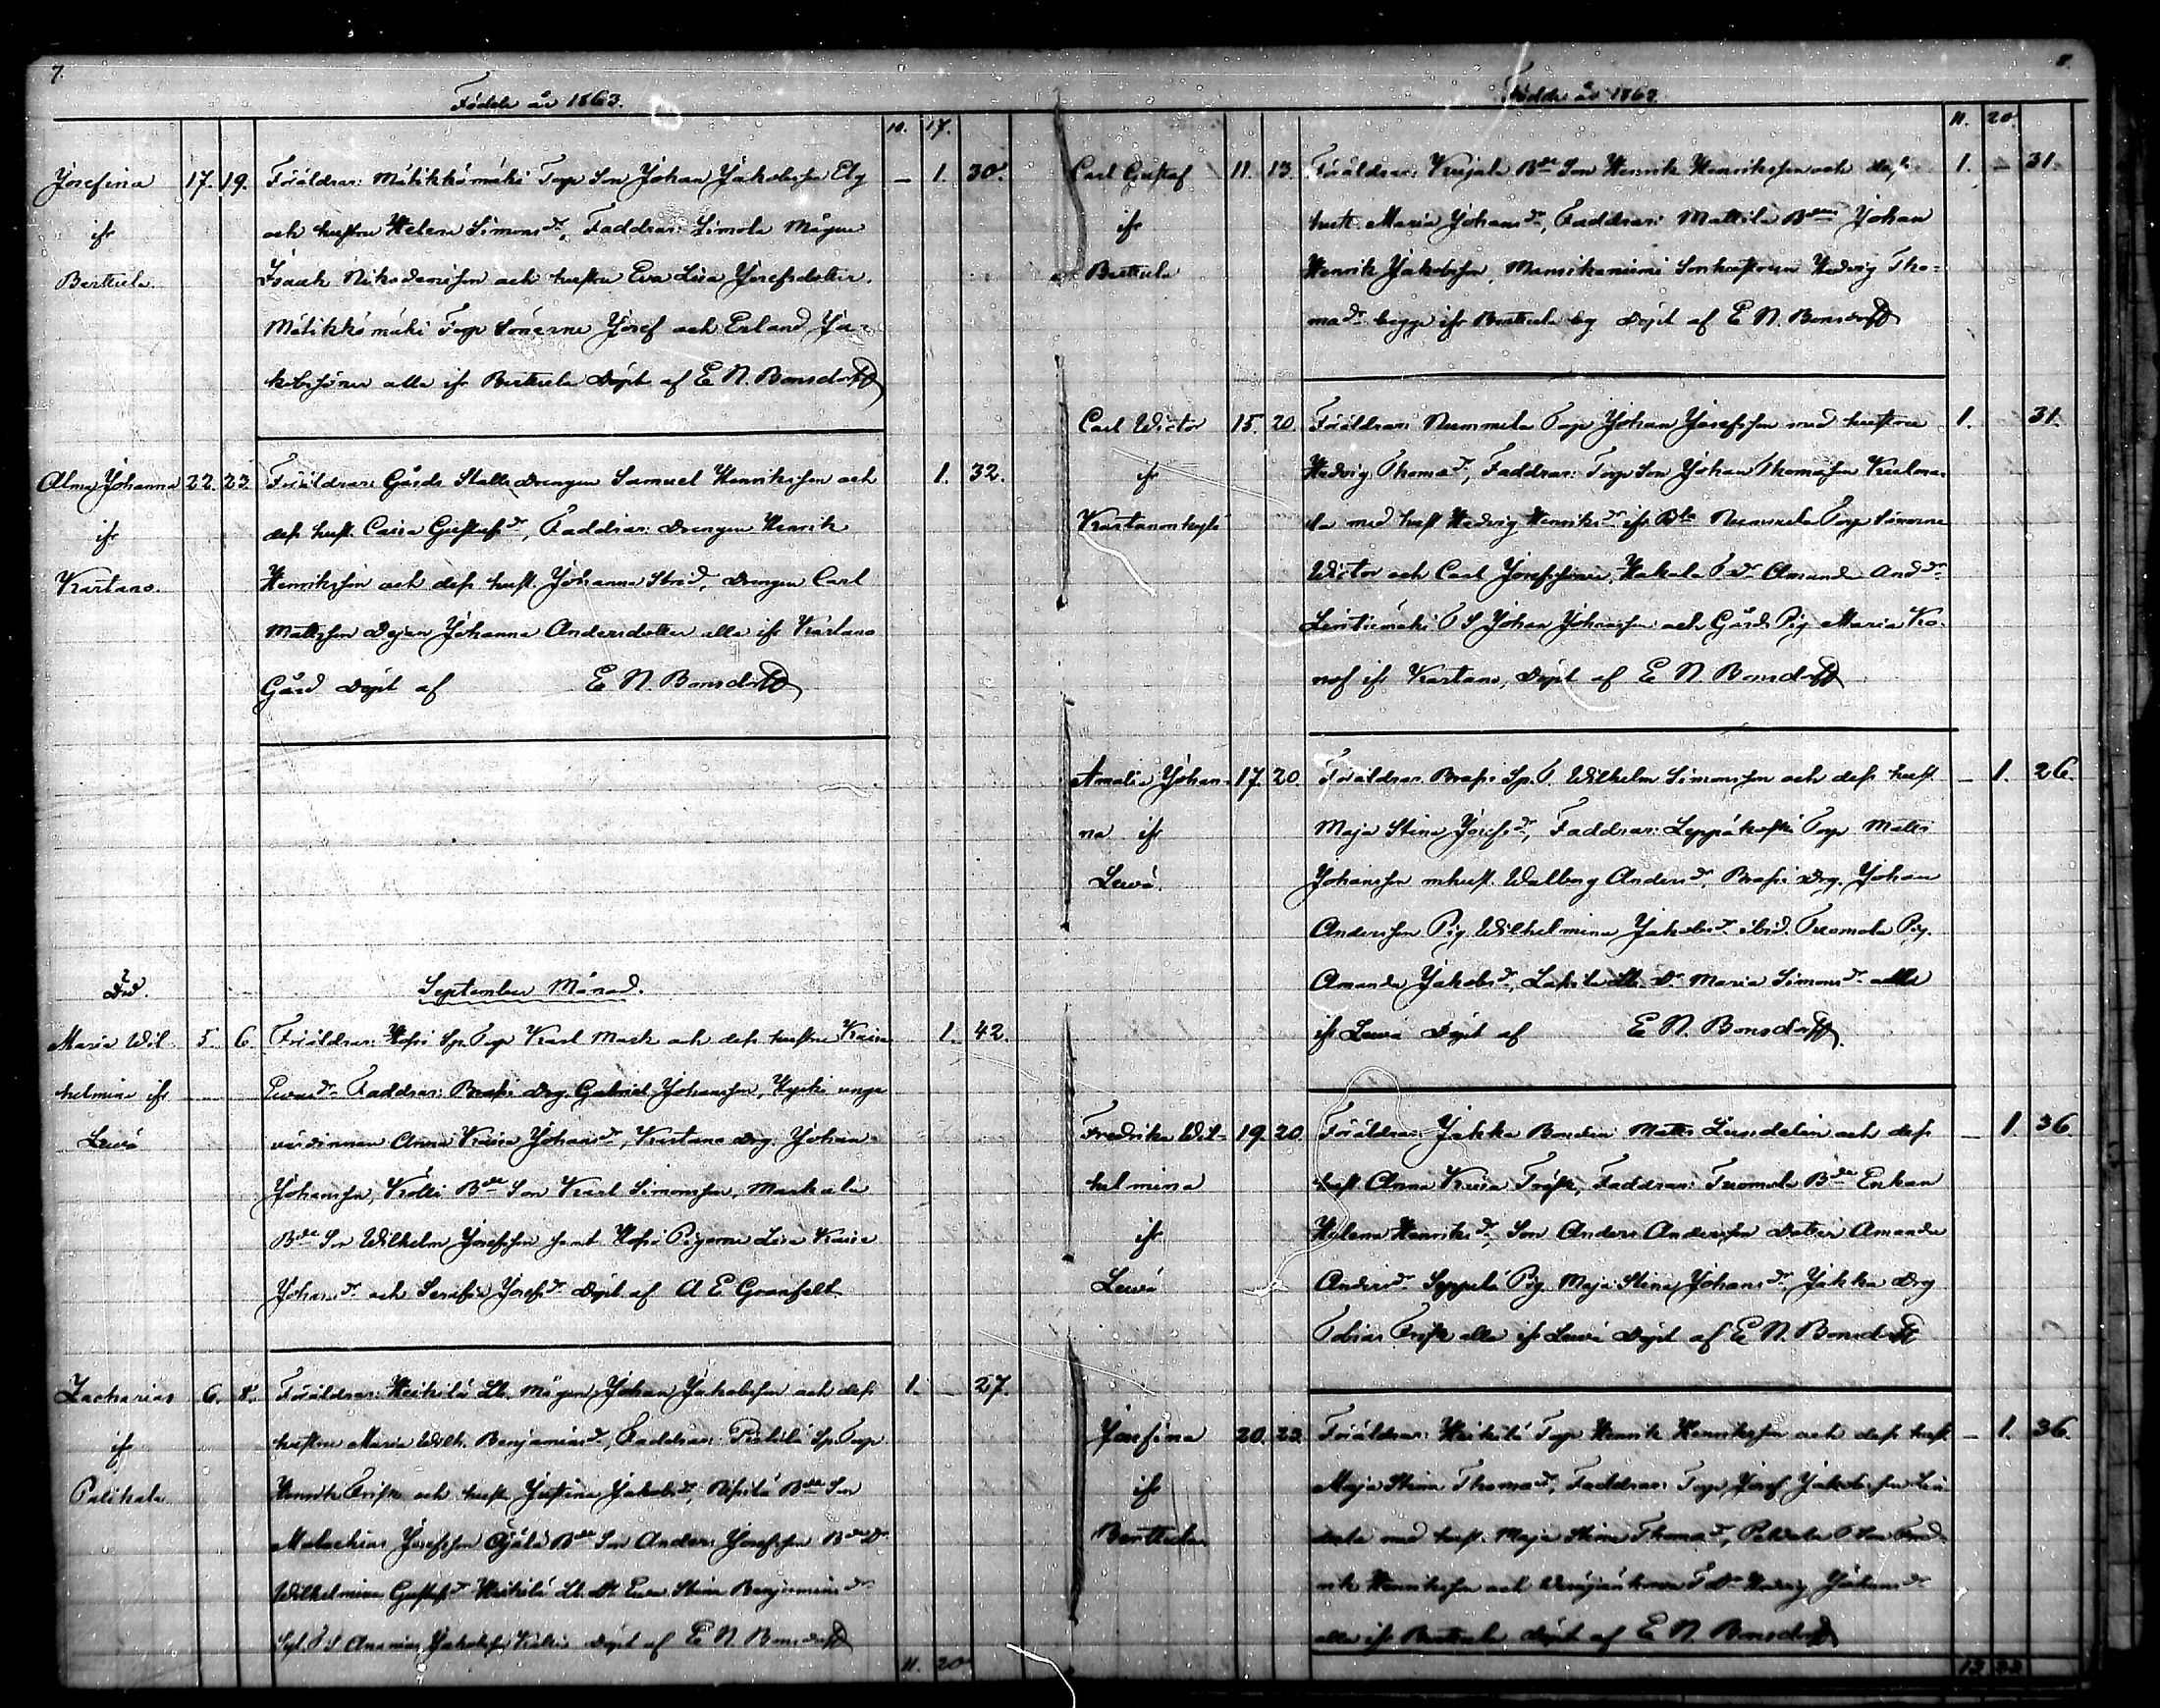 7.
Födde år 1863.
10. 17.
Josefina 17. 19. Föräldrar: Mätikkömäki Torp Son Johan Jakobsson Elg — 1. 30.
ifr och hustru Helena Simonsdr, Faddrar: Simola Mågen
Berttula Isaack Nikodemisson och hustru Eva Lisa Josefsdotter.
Mätikkömäki Torp Sönerne Josef och Erland Ja-
kobssöner alla ifr Berttula Döpt af E N. Bonsdorff
Alma Johanna 22. 23. Föräldrar: Gårds Stalldrengen Samuel Henriksson och 1. 32.
ifr dess hust. Caisa Gustafsdr, Faddrar: Drengen Henrik
Kartano. Henriksson och dess hust. Johanna Strid, Drengen Carl
Mattsson Dejan Johanna Andersdotter alla ifr Kartano
Gård Döpt af E N. Bonsdorff
Död. September Månad.
Maria Wil- 5. 6. Föräldrar: Hossi Sp. Torp Karl Mark och dess hustru Kaisa 1. 42.
helmina ifr Faddrar: Brasi Drg. Gabriel Johansson, unga
Lewä värdinnan Anna Kaisa Johansdr, Kartano Drg. Johan
Johansson, Kölli Bde Son Karl Simonsson, Markula
Bde Son Wilhelm Josefsson samt Hossi Pigorne Lisa Kaisa
Johansdr och Serafia Josefsdr Döpt af A E Granfelt
Zacharias 6. 8. Föräldrar: Heikilä Lb. Mågen Johan Jakobsson och dess 1. — 27.
if hustru Maria Wilh. Benjaminsdr, Faddrar: Sp. Torp
Palikala Henrik Frisk och hust. Justina Jakobsdr, Bde Son
Malachias Josefsson Ojala Bde Son Anders Josefsson Bde Dr
Wilhelmina Gustafsdr Heikilä Lb. Dr Eva Stina Benjaminsdr
T S Ananias Jakobsson Döpt af E N Bonsdorff
11. 20

8.
Födde år 1863.
11. 20.
Carl Gustaf 11. 13. Föräldrar: Bde Son Henrik Henriksson och dess 1. — 31.
ifr hust. Maria Johansdr, Faddrar: Mattila Bden Johan
Berttula Henrik Jakobsson, Mansikaniemi Sonhustrun Hedvig Tho-
madr begge ifr Berttula by Döpt af E N. Bonsdorff
Carl Wictor 15. 20. Föräldrar: Nummela Torp Johan Josefsson med hustru 1. 31.
ifr Hedvig Thomadr, Faddrar: Torp Son Johan Thomasson
Kartanonkylä la med hust Hedvig Henriksdr ifr Bla Nummela Torp Sönerne
Wictor och Carl Josefssöner, Hakala T Dr Amanda Anddr
T S Johan Johansson och Gårds Pig Maria Ko-
nof ifr Kartano, Döpt af E N. Bonsdorff
Amalia Johan- 17. 20. Föräldrar: Brasi Sp. T. Wilhelm Simonsson och dess hust — 1. 26.
na ifr Maja Stina Josefsdr, Faddrar: Leppäkoski Torp Matts
Lewä. Johansson mhust. Walborg Andersdr, Brasi Drg. Johan
Andersson Pig. Wilhelmina Jakobsdr ibid. Tuomola Pig.
Amanda Jakobsdr, Lb. Dr Maria Simonsdr alla
ifr Lewä Döpt af E N. Bonsdorff
Fredrika Wil- 19. 20. Föräldrar: Jakka Bonden Matts Lundelin och dess — 1. 36.
helmina hust Anna Kaisa Frisk, Faddrar: Tuomola Bde Enkan
ifr Helena Henriksdr, Son Anders Andersson Dotter Amanda
Lewä Andersdr Seppelä Pig. Maja Stina Johansdr, Jakka Drg
Tobias Frisk alla ifr Lewä Döpt af E N. Bonsdorff
Josefina 20. 23. Föräldrar: Heikilä Torp Henrik Henriksson och dess hust — 1. 36.
ifr Maja Stina Thomadr, Faddrar: Torp Josef Jakobsson
Berttula med hust. Maja Stina Thomadr, T Son Fred-
rik Henriksson och T Dr Hedvig Johansdr
alla ifr Berttula Döpt af E N Bonsdorff